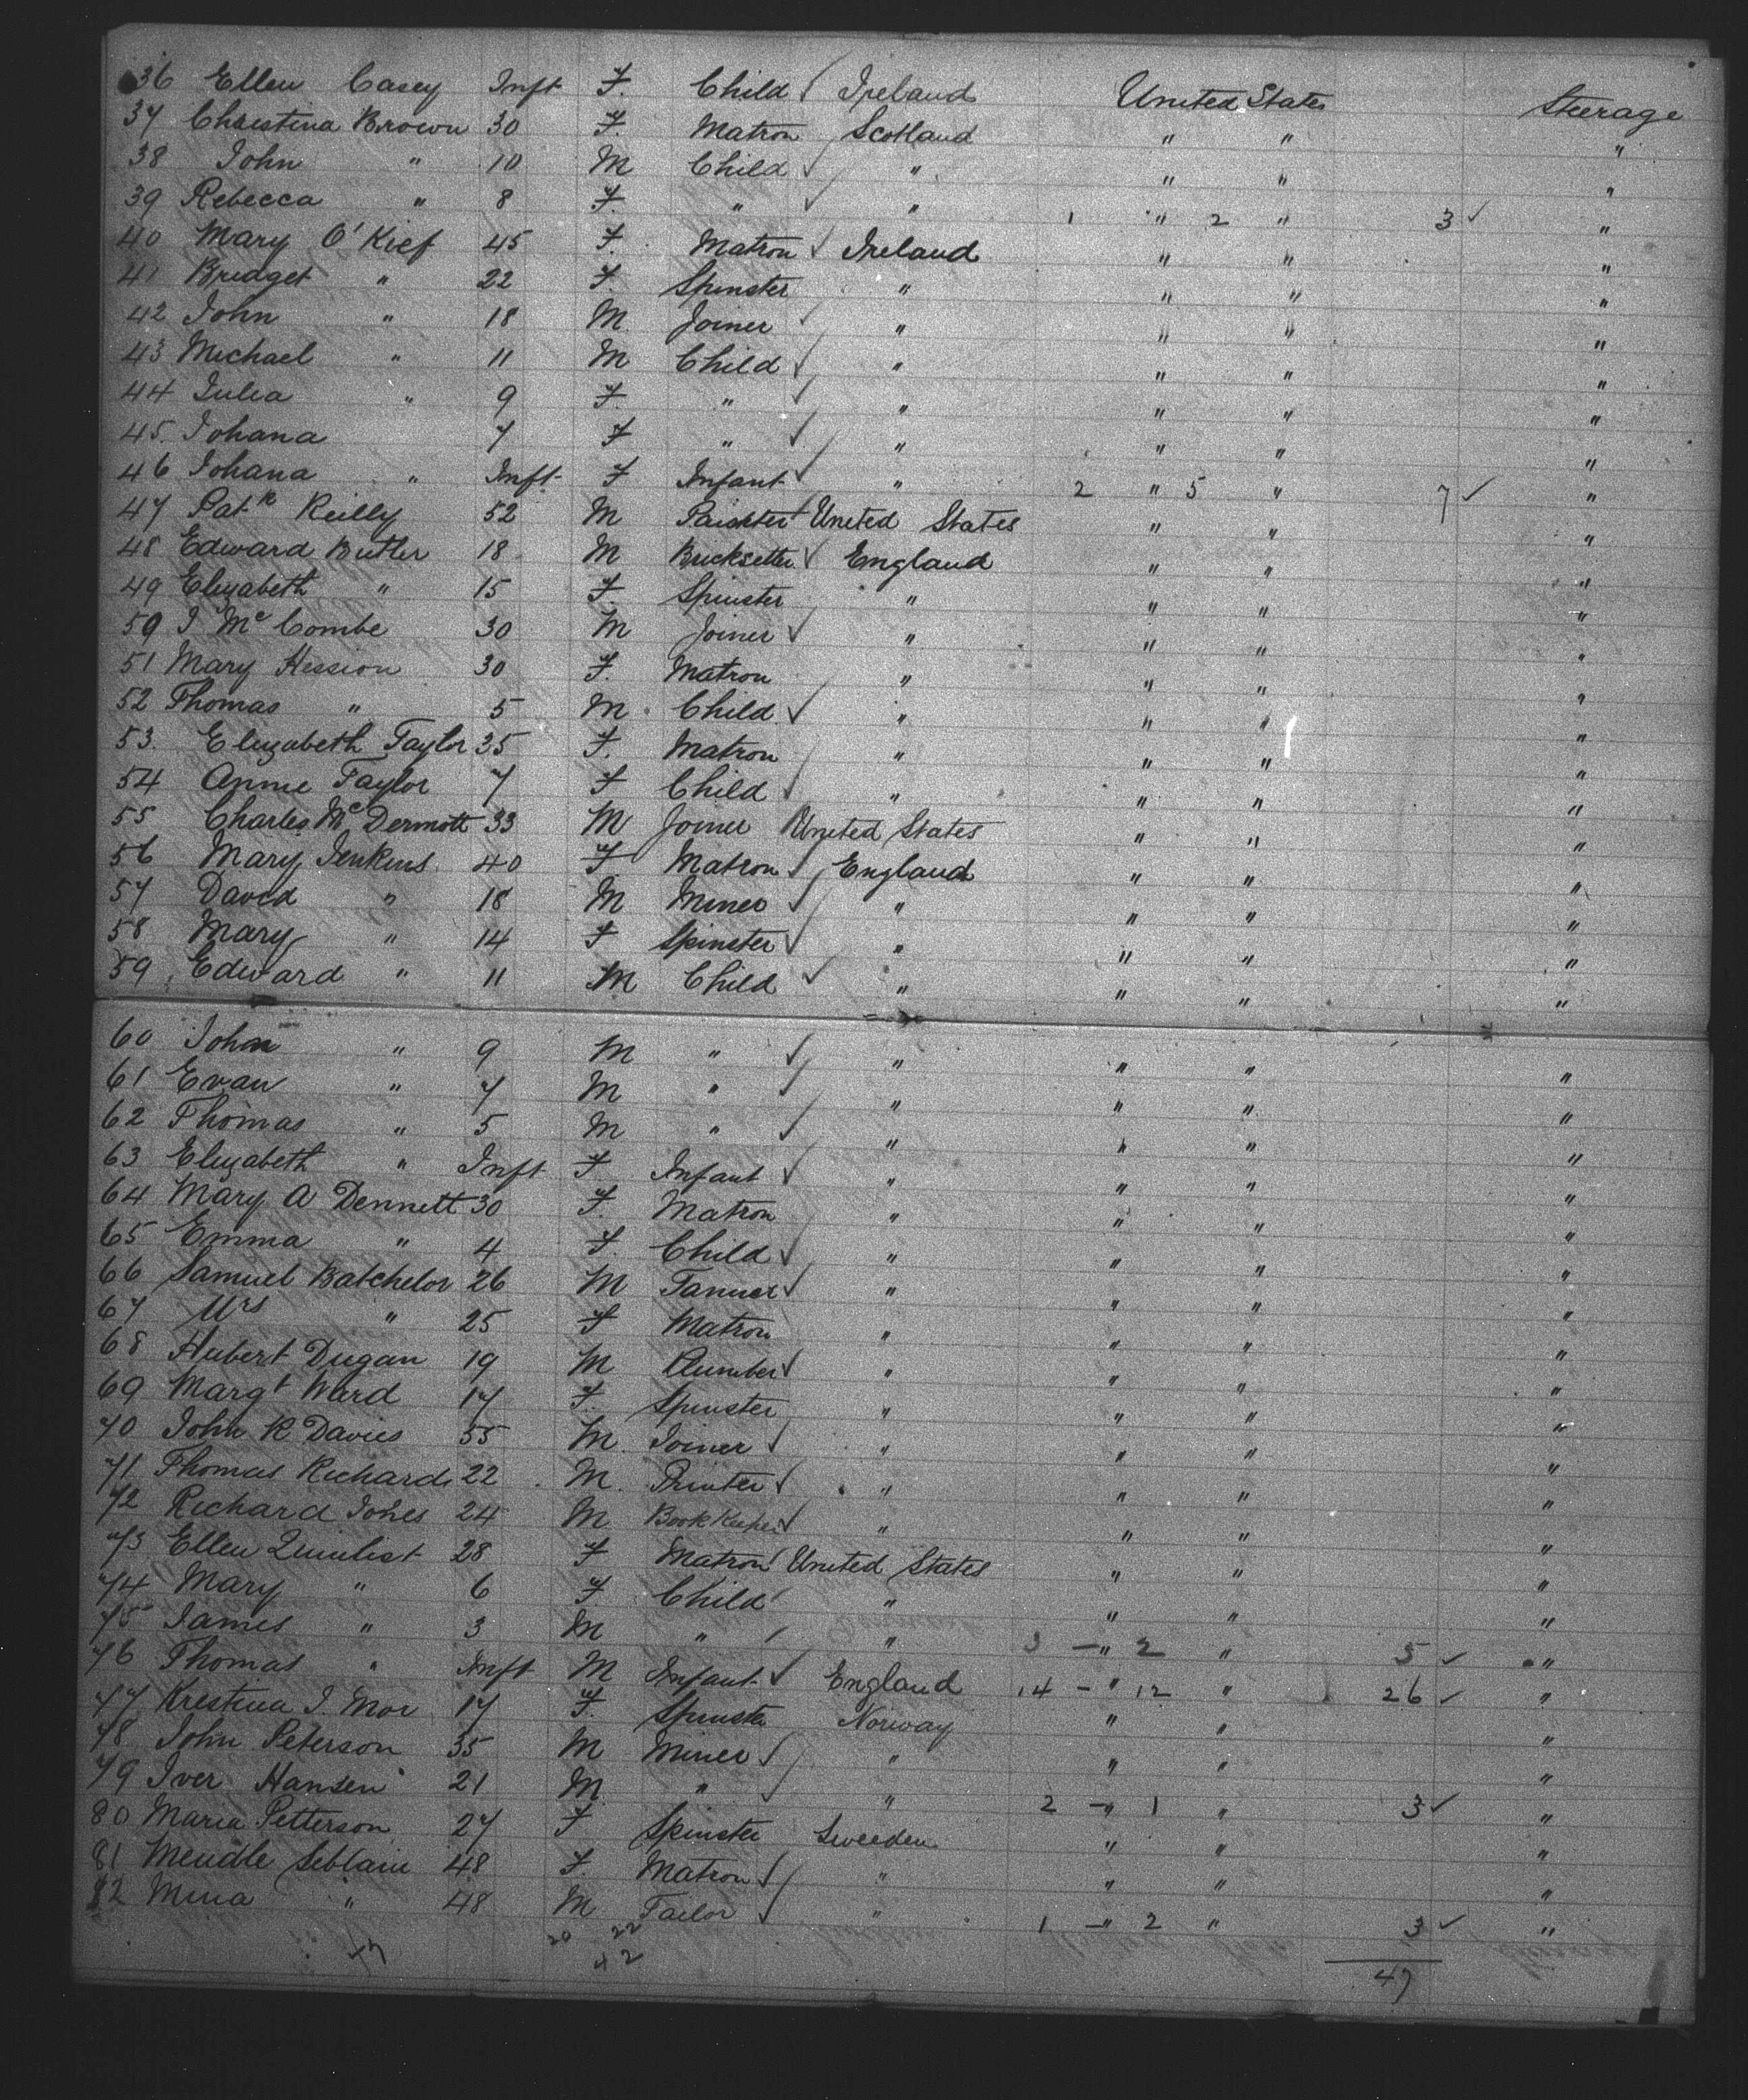 36 Ellen Casey Inft F. Child Ireland United States Steerage
37 Christina Brown 30 F. Matron Scotland " " "
38 John " 10 M Child " " " "
39 Rebecca " 8 F. " " 1 " 2 " 3 "
40 Mary O'Kief 45 F. Matron Ireland " " "
41 Bridget " 22 F. Spinster " " " "
42 John " 18 M. Joiner " " " "
43 Michael " 11 M Child " " " "
44 Julia " 9 F. " " " " "
45. Johana 7 F " " " " "
46 Johana " Inft F Infant " 2 " 5 " 7 "
47 Patk Reilly 52 M Painter United States " " "
48 Edward Butler 18 M Bricksetter England " " "
49 Elizabeth " 15 F. Spinster " " " "
50 J McCombe 30 M Joiner " " " "
51 Mary Hession 30 F. Matron " " " "
52 Thomas " 5 M. Child " " " "
53. Elizabeth Taylor 35 F. Matron " " " "
54 Annie Taylor 7 F Child " " " "
55 Charles McDermott 33 M Joiner United States " " "
56 Mary Jenkins 40 F Matron England " " "
57 David " 18 M Miner " " " "
58 Mary " 14 F Spinster " " " "
59 Edward " 11 M Child " " " "
60 John " 9 M " " " " "
61 Evan " 7 M " " " " "
62 Thomas " 5 M " " " " "
63 Elizabeth " Inft F Infant " " " "
64 Mary A Dennett 30 F. Matron " " " "
65 Emma " 4 F. Child " " " "
66 Samuel Batchelor 26 M Tanner " " " "
67 Mrs " 25 F Matron " " " "
68 Hubert Dugan 19 M Plumber " " " "
69 Margt Ward 17 F. Spinster " " " "
70 John R Davies 55 M. Joiner " " " "
71 Thomas Richards 22 M. Printer " " " "
72 Richard Jones 24 M Book Keeper " " " "
73 Ellen 28 F Matron United States " " "
74 Mary " 6 F Child " " " "
75 James " 3 M " " 3 - " 2 " 5 "
76 Thomas " Inft M Infant England 14 - " 12 " 26 "
77 Krestina J. Mor 17 F. Spinster Norway " " "
78 John Peterson 35 M Miner " " " "
79 Iver Hansen 21 M. " " 2 - " 1 " 3 "
80 Maria Petterson 27 F Spinster Sweeden " " "
81 Mendle 48 F. Matron " " " "
82 Mina " 48 M Tailor " 1 - " 2 " 3 "
47 20 22 47
42